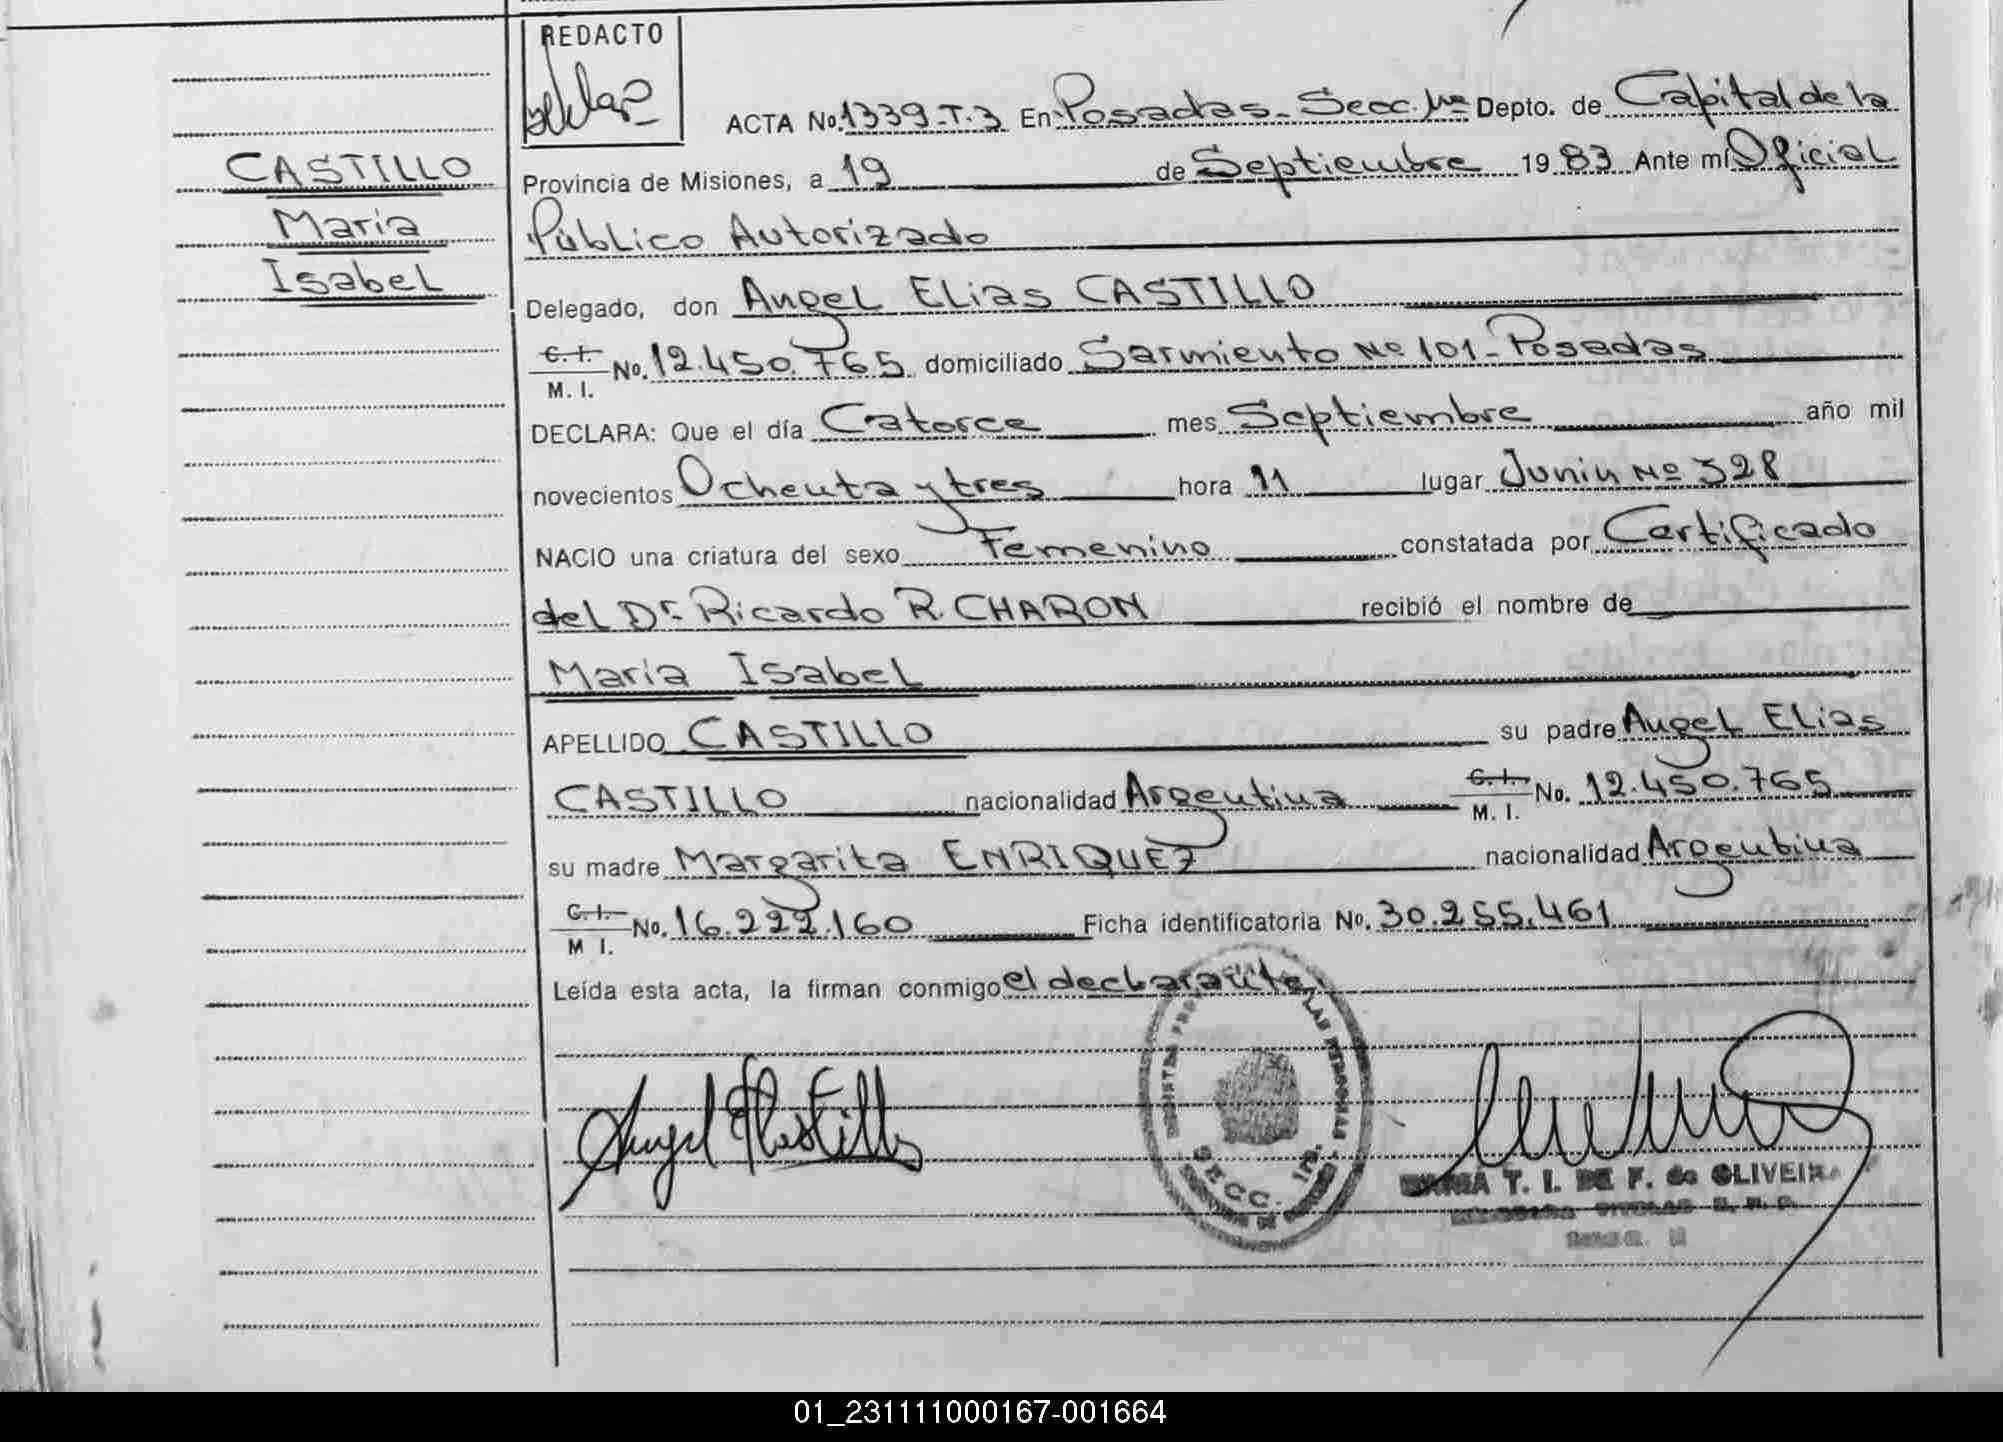 REDACTO
ACTA No. 1339-T.3 En Posadas-Secc. 1ra Depto. de Capital de la
CASTILLO
María
Isabel
Provincia de Misiones, a 19 de Septiembre 1983 Ante mí Oficial
Público Autorizado
Delegado, don Angel Elias CASTILLO
C. I. M. I. No. 12.450.765 domiciliado Sarmiento Nº 101-Posadas
DECLARA: Que el día Catorce mes Septiembre año mil
novecientos Ochenta y tres hora 11 lugar Junin Nº 328
NACIO una criatura del sexo Femenino constatada por Certificado
del Dr. Ricardo R. CHARON recibió el nombre de
María Isabel
APELLIDO CASTILLO su padre Angel Elias
CASTILLO nacionalidad Argentina C. I. M. I. No. 12.450.765
su madre Margarita ENRIQUEZ nacionalidad Argentina
C. I. M I. No. 16.222.160 Ficha identificatoria No. 30.255.461
Leída esta acta, la firman conmigo el declarante.
Angel E Castillo
LAS PERSONAS
SECC. 1ra.
MARIA T. I. DE F. de OLIVEIRA
01_231111000167-001664